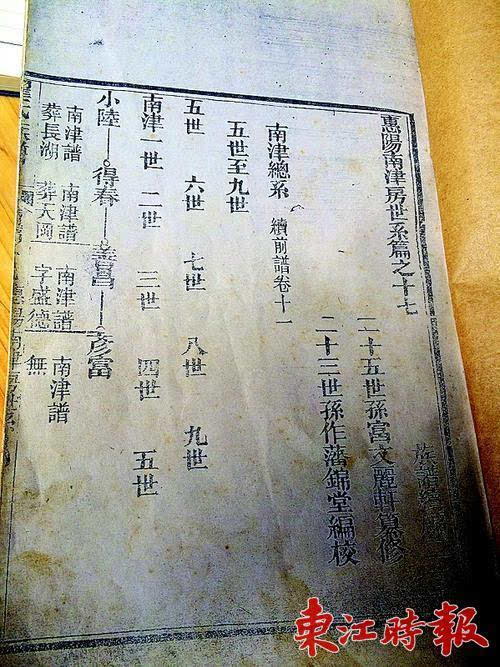 惠陽南津房世系篇之十七
二十五世孫富文麗軒篡修
二十三世孫作藩錦堂編校
南津總系 續前譜卷十一
五世至九世
五世 六世 七世 八世 九世
南津一世 二世 三世 四世 五世
小陸 得春 善昌 彥富
南津譜 南津譜 南津譜 南津譜
葬長湖 葬天岡 字盛德 無
東江時報